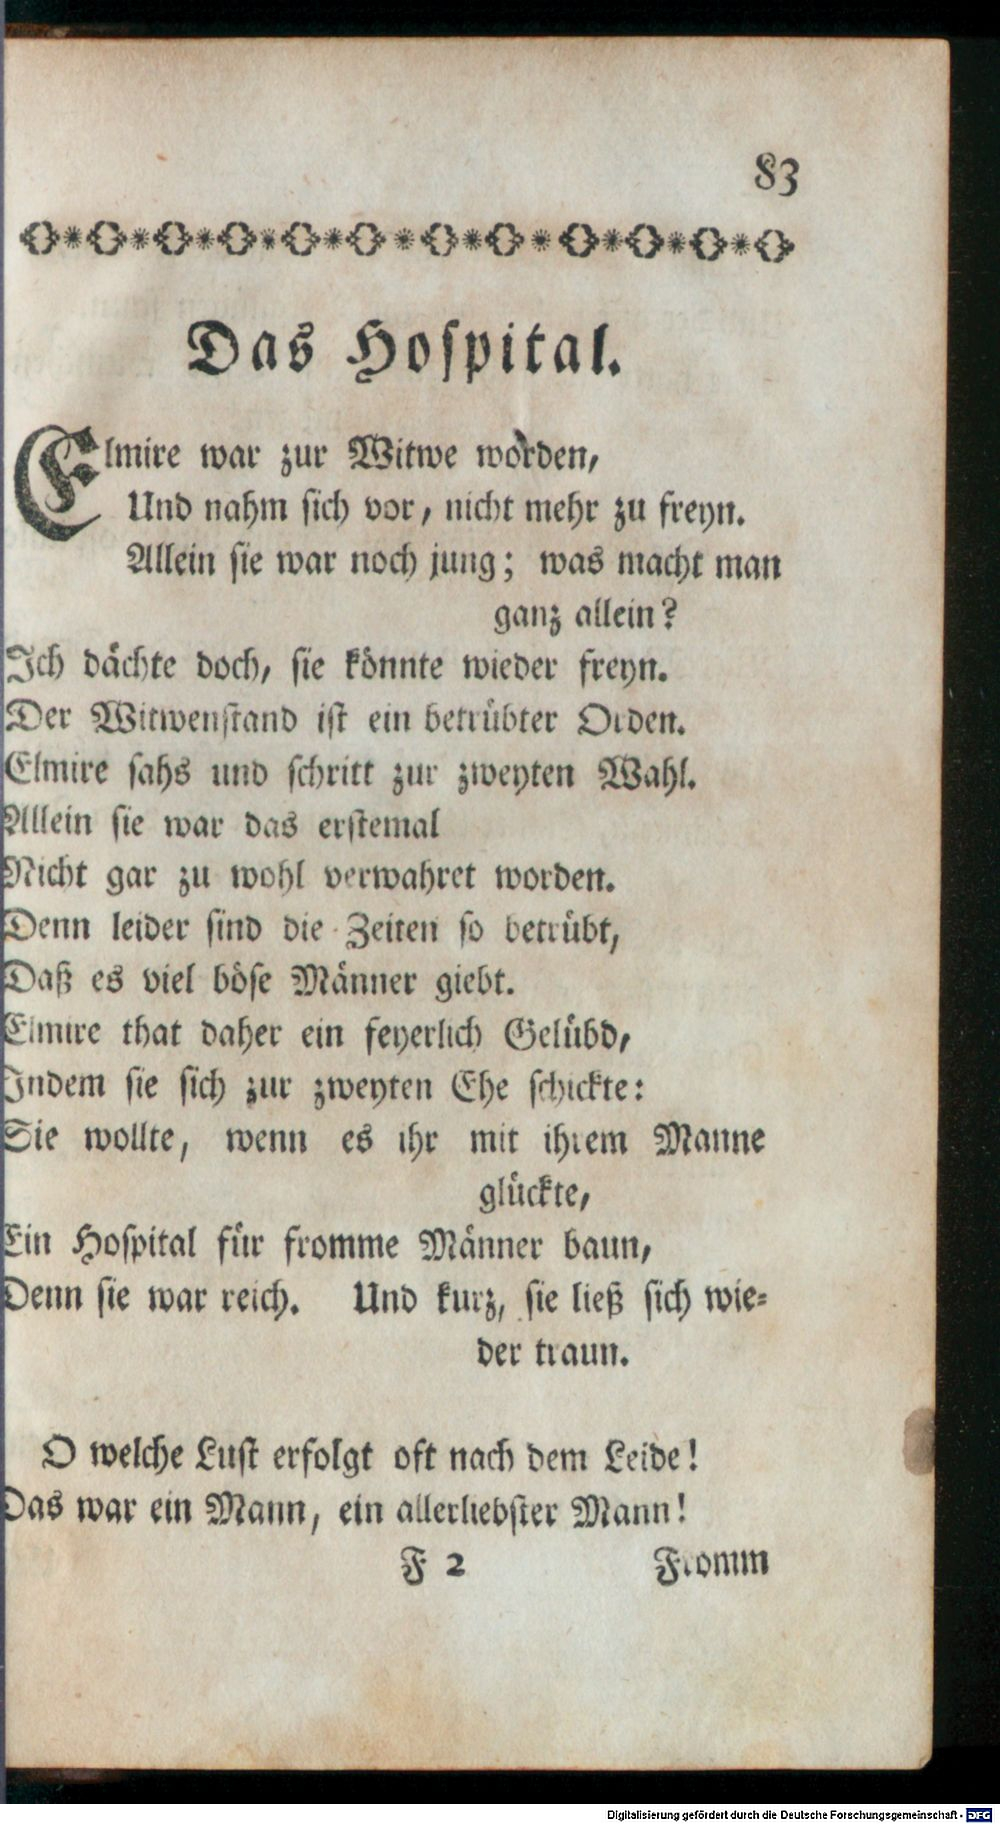 83
Das Hospital.
Elmire war zur Witwe worden,
Und nahm sich vor, nicht mehr zu freyn.
Allein sie war noch jung; was macht man
ganz allein?
Ich dächte doch, sie könnte wieder freyn.
Der Witwenstand ist ein betrübter Orden.
Elmire sahs und schritt zur zweyten Wahl.
Allein sie war das erstemal
Nicht gar zu wohl verwahret worden.
Denn leider sind die Zeiten so betrübt,
Daß es viel böse Männer giebt.
Elmire that daher ein feyerlich Gelübd,
Indem sie sich zur zweyten Ehe schickte:
Sie wollte, wenn es ihr mit ihrem Manne
glückte,
Ein Hospital für fromme Männer baun,
Denn sie war reich. Und kurz, sie ließ sich wie-
der traun.
O welche Lust erfolgt oft nach dem Leide!
Das war ein Mann, ein allerliebster Mann!
F 2 Fromm
Digitalisierung gefördert durch die Deutsche Forschungsgemeinschaft - DFG